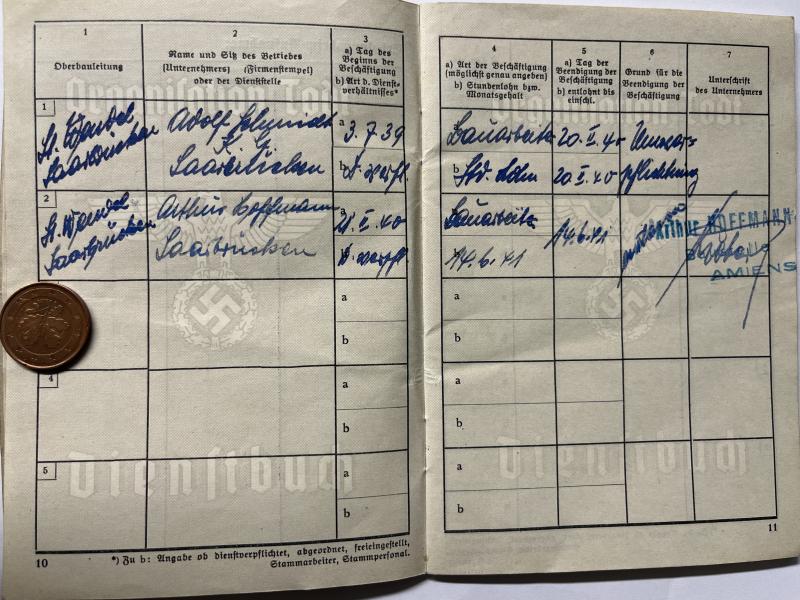 1
Oberbauleitung
2
Name und Sitz des Betriebes
(Unternehmers) (Firmenstempel)
oder der Dienststelle
3
a) Tag des
Beginns der
Beschäftigung
b) Art d. Dienst-
verhältnisses*)
1
St. Wendel
Saarbrücken
Adolf Schmidt
Saarbrücken
a
3.7.39
b
2
St. Wendel
Saarbrücken
Arthur Hoffmann
Saarbrücken
a
21.II.40
a
b
4
a
b
5
a
b
Organisation Todt
Dienstbuch
10
*) Zu b: Angabe ob dienstverpflichtet, abgeordnet, freieingestellt,
Stammarbeiter, Stammpersonal.
4
a) Art der Beschäftigung
(möglichst genau angeben)
b) Stundenlohn bzw.
Monatsgehalt
5
a) Tag der
Beendigung der
Beschäftigung
b) entlohnt bis
einschl.
6
Grund für die
Beendigung der
Beschäftigung
7
Unterschrift
des Unternehmers
Bauarbeiter
20.II.40
b
Std. Lohn
20.II.40
pflichtung
Bauarbeiter
14.6.41
14.6.41
ARTHUR HOFFMANN
AMIENS
a
b
a
b
a
b
Dienstbuch
11